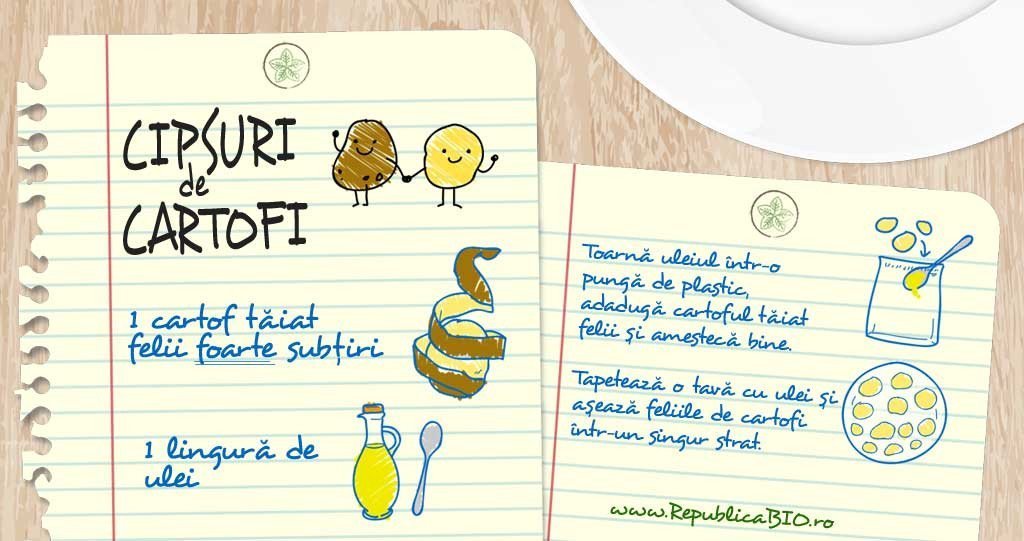 CIPSURI
de
CARTOFI
1 cartof tăiat
felii foarte subțiri
1 lingură de
ulei
Toarnă uleiul într-o
pungă de plastic,
adadugă cartoful tăiat
felii și amestecă bine.
Tapetează o tavă cu ulei și
așează feliile de cartofi
într-un singur strat.
www.RepublicaBIO.ro